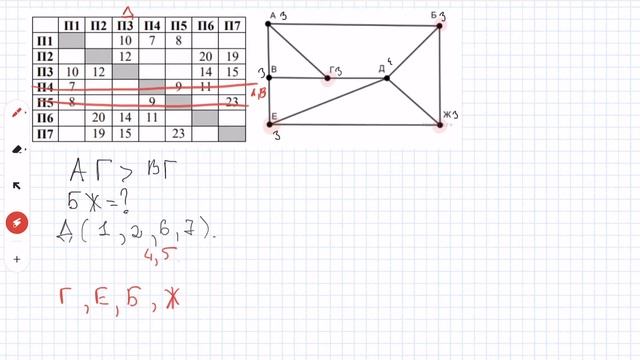 Д
П1 П2 П3 П4 П5 П6 П7
П1 10 7 8
П2 12 20 19
П3 10 12 14 15
П4 7 9 11
П5 8 9 23
П6 20 14 11
П7 19 15 23
А В
А 3
Б 3
3 В
Г 3
Д 4
Е 3
Ж 3
А Г > В Г
Б Ж = ?
Д ( 1 , 2 , 6 , 7 ) .
4 , 5
Г , Е , Б , Ж